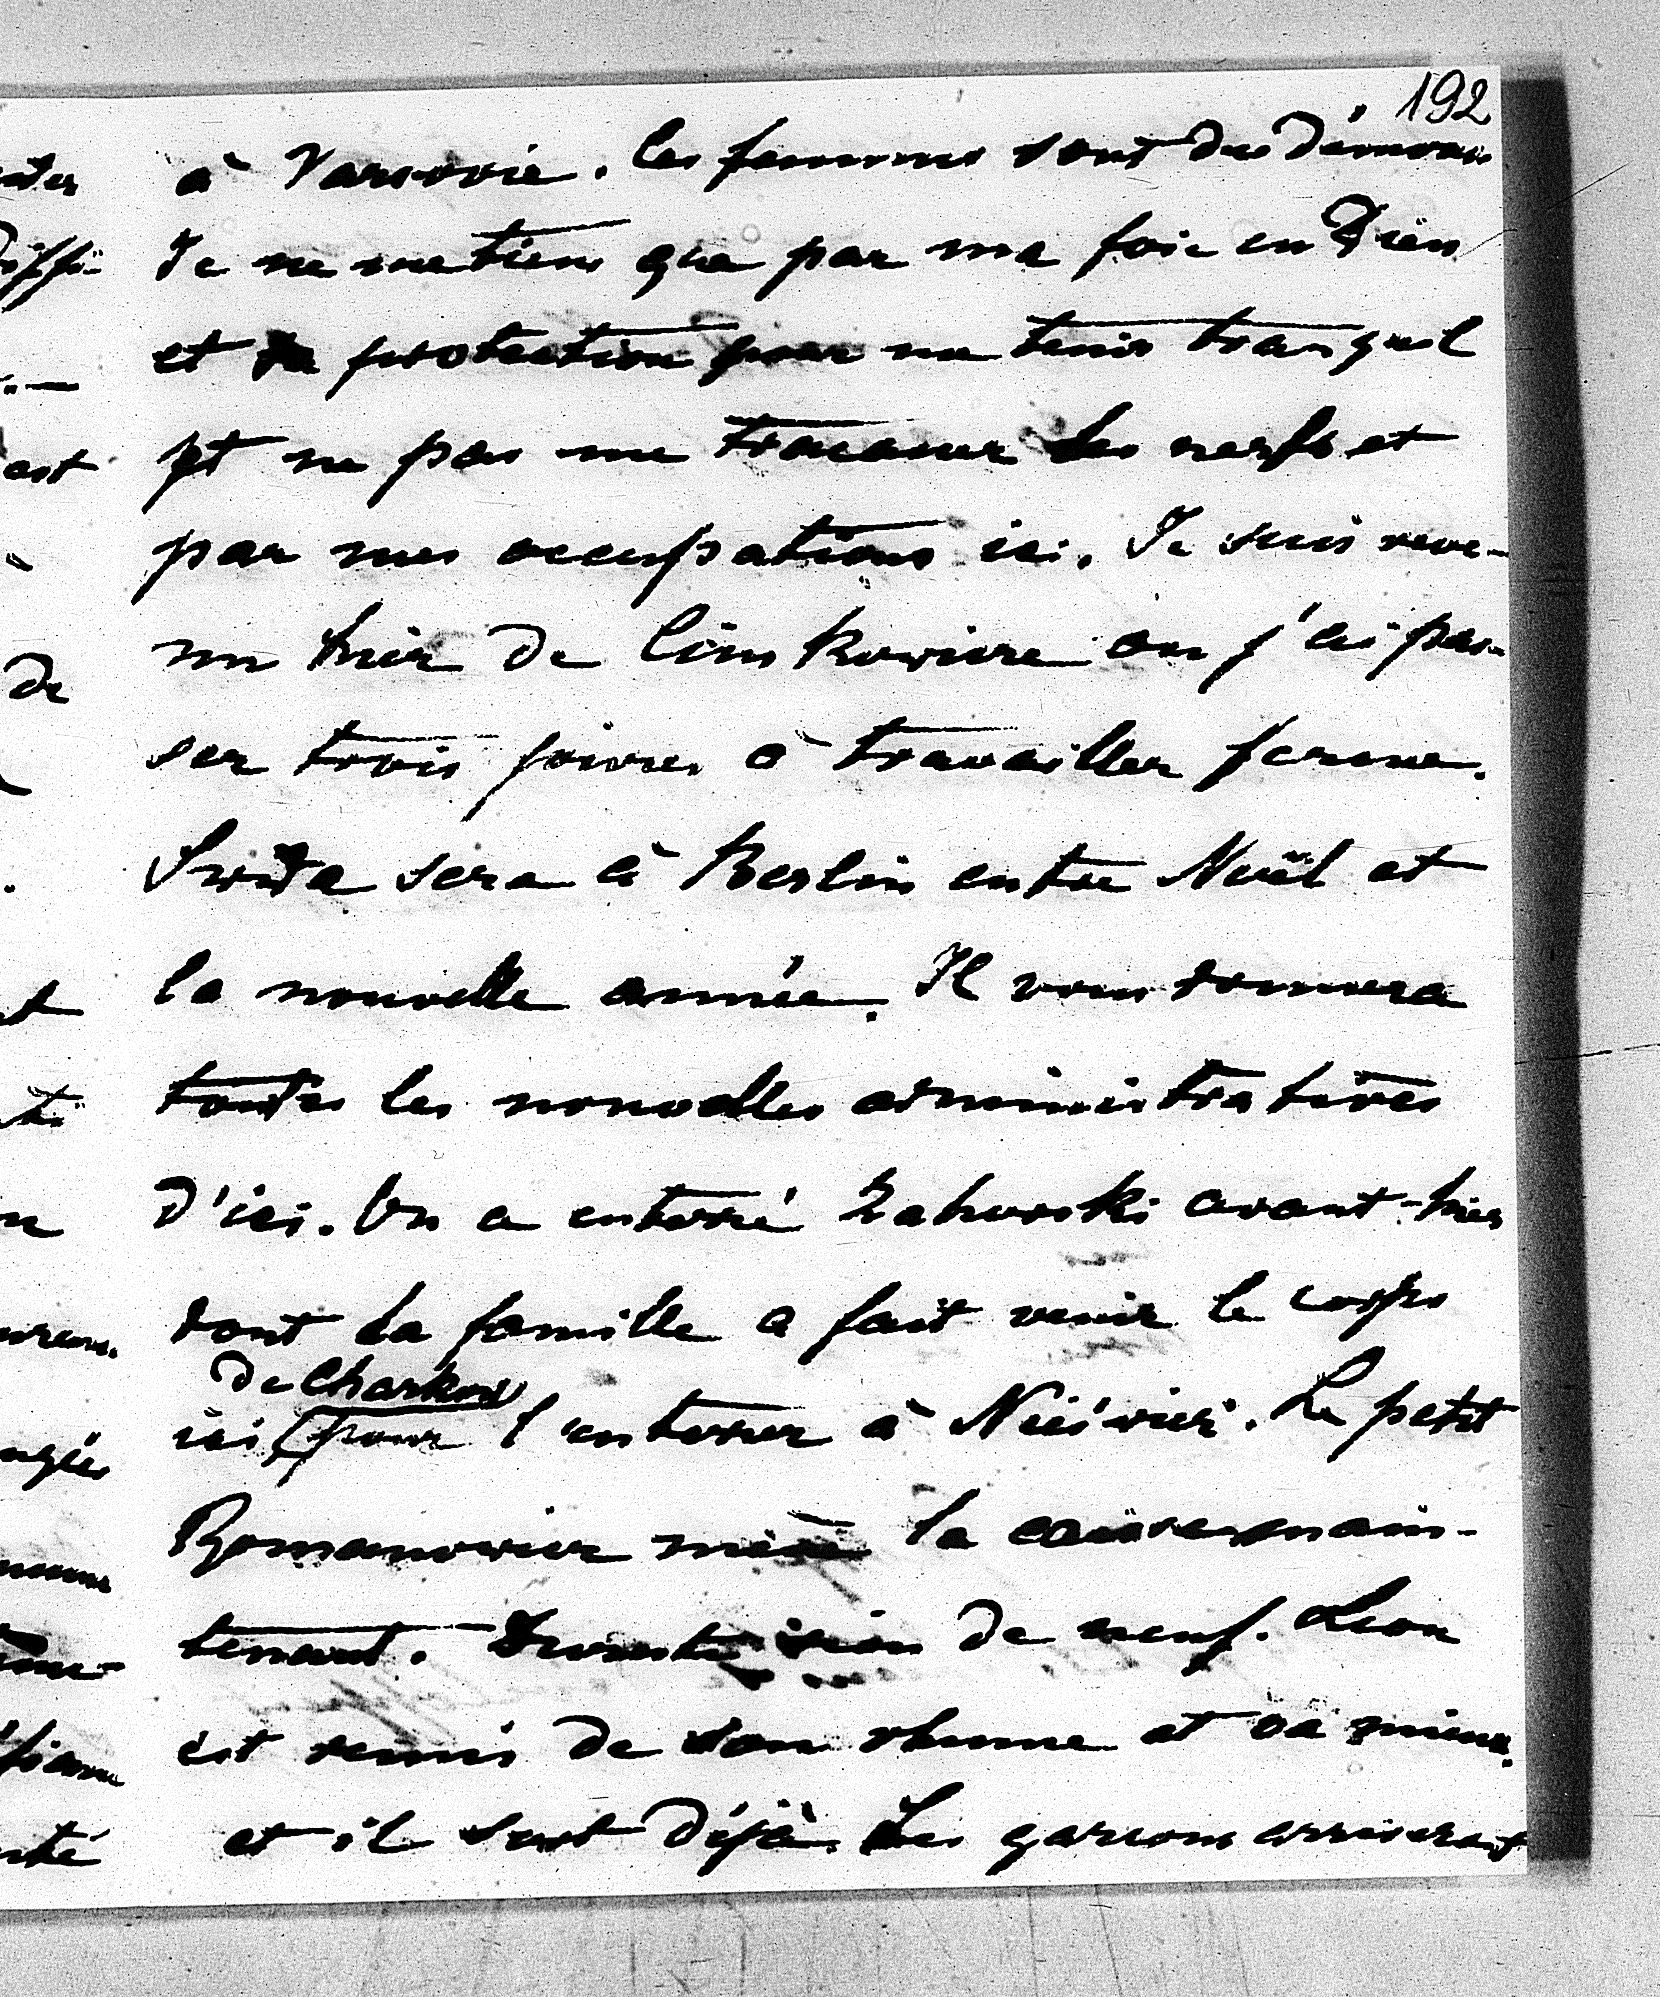 192
à Varsovie. Les femmes sont des démons
Je ne me tiens que par ma foie en Dieu
et sa protection pour me tenir tranquil
et ne pas me tracasser les nerfs et
par mes occupations ici. Je suis reve-
nu hier de Cimkowicze ou j'ai pas-
ser trois jours à travailler ferme.
Swida sera à Berlin entre Noël et
la nouvelle année. Il vous donnera
toutes les nouvelles administratives
d'ici. On a enterré Zahorski avant-hier
dont la famille a fait venir le corps
de Charkow
ici pour l'enterrer à Nieśwież. Le petit
Romanowicz mène la caisse main-
tenant. rien de neuf. Leon
est remis de son rhume et va mieux.
et il sort déjà. Les garcons arriveront